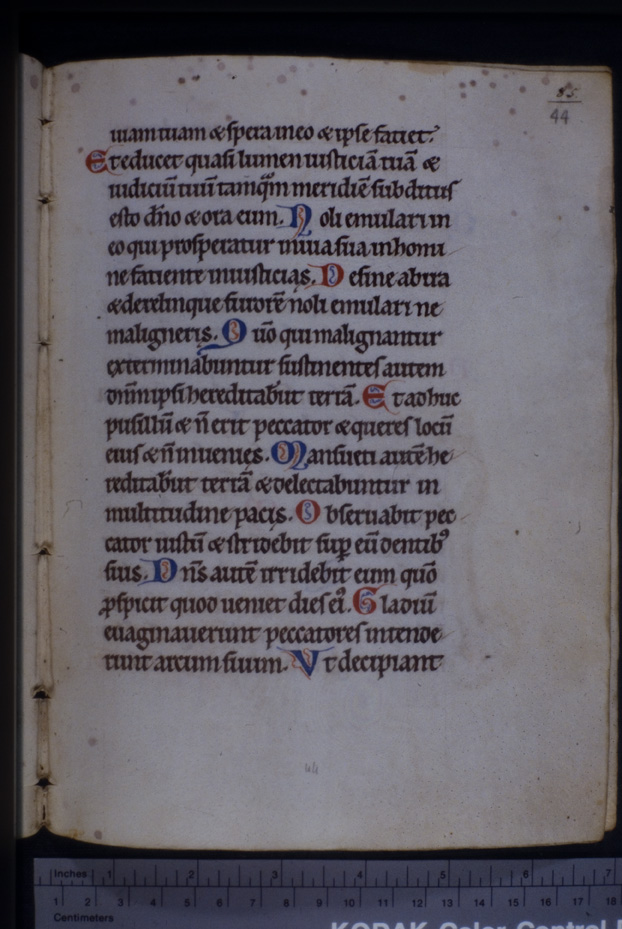 85
44
uiam tuam & spera in eo & ipse faciet.
Et educet quasi lumen iusticiā tuā &
iudiciū tuū tamq̄m meridiē subditus
esto dn̄o & ora eum. Noli emulari in
eo qui prosperatur in uia sua in homi
ne faciente iniusticias. Desine ab ira
& derelinque furorē noli emulari ne
maligneris. Qūo qui malignantur
exterminabuntur sustinentes autem
dn̄m ipsi hereditab̄ut terrā. Et adhuc
pusillū & n̄ erit peccator & queres locū
eius & n̄ inuenies. Mansueti autē he
reditab̄ut terrā & delectabuntur in
multitudine pacis. Obseruabit pec
cator iustū & stridebit sup̄ eū dentibꝰ
suis. Dn̄s autē irridebit eum quō
ꝓspicit quod ueniet dies ei᷒. Gladiū
euaginauerunt peccatores intende
runt arcum suum. Vt decipiant
44
Inches 1 2 3 4 5 6 7
1 2 3 4 5 6 7 8 9 10 11 12 13 14 15 16 17 18
Centimeters
KODAK Color Control